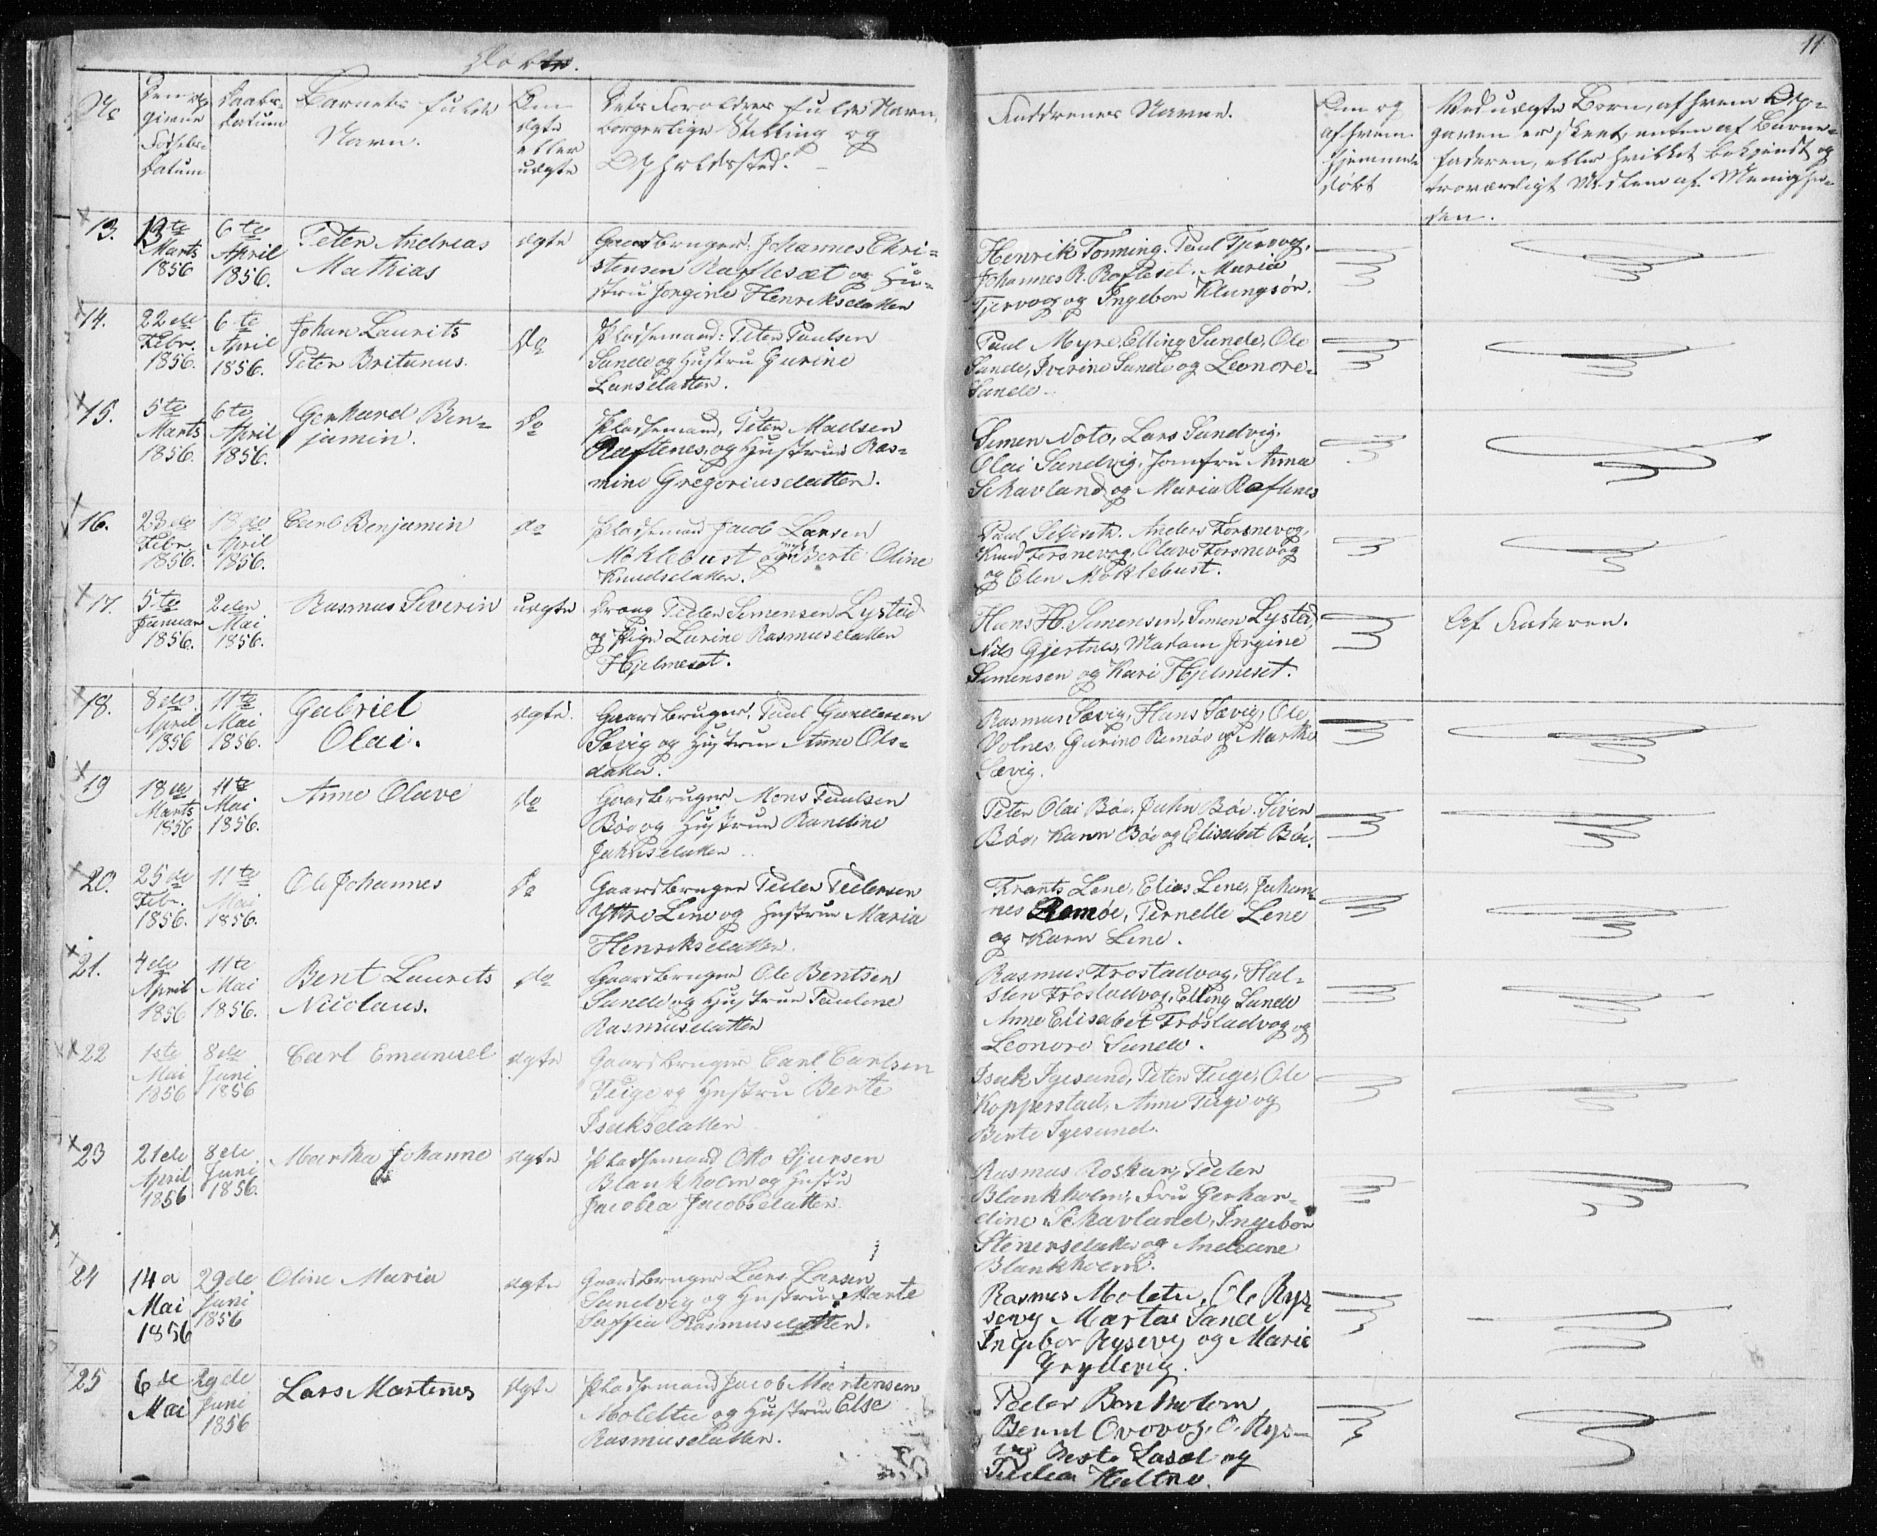 11
Døbte.
No
Den op-
givne
Fødsels-
Datum
Daabs-
datum
Barnets fulde
Navn.
Om
ægte
eller
uægte
Dets Forældres fulde Navn,
borgerlige Stilling og
Opholdssted.
Faddernes Navne.
Om og
af hvem
hjemme-
døbt
Ved uægte Børn, af hvem Op-
gaven er skeet, enten af Barne-
faderen, eller hvilket bekjendt og
troværdigt Medlem af Menighe-
den.
13.
13te
Marts
1856
6te
April
1856.
Peter Andreas
Mathias
ægte
Gaardbruger: Johannes Chri-
stensen Raftesæt og Hu-
stru Jorgine Henriksdatter
Henrik Tonning. Paul Tjervog,
Johannes R. Rafteset, Maria
Tjervog og Ingebor Klungsør.
14.
22de
Febr.
1856.
6te
April
1856.
Johan Laurits
Peter Britanus.
Do
Pladsemand: Peter Paulsen
Sande og Hustru Gurine
Larsdatter.
Paul Myre, Elling Sande, Ole
Sande, Iverine Sande og Leonore
Sande.
15.
5te
Marts
1856.
6te
April
1856.
Gerhard Ben-
jamin.
Do
Pladsemand, Peter Madsen
Raftenes, og Hustrue Ras-
mine Gregoriusdatter.
Simen Noto, Lars Sandvig,
Olai Sandvig, Jomfru Anna
Schavland og Maria Raftenes
16.
23de
Febr.
1856.
13de
April
1856.
Carl Benjamin
do
Pladsemand Jacob Larsen
Møklebust og Berte Oline
Knudsdatter.
Paul Anders Torsnevog,
Knud Torsnevog, Olave Torsnevog
og Elen Møklebust.
17.
5te
Januar
1856.
2den
Mai
1856.
Rasmus Severin
uægte
Dreng Peder Simensen Lystad
og Pige Larine Rasmusdatter
Hjelmeset.
Hans H. Simensen, Simen Lystad,
Nils Gjertnes, Madam Jorgine
Simensen og Kari Hjelmeset.
Af Faderen.
18.
8de
April
1856
11te
Mai
1856.
Gabriel
Olai.
ægte.
Gaardbruger, Paul Gundersen
Sævig og Hustrue Anne Ols-
datter.
Rasmus Sævig, Hans Sævig, Ole
Volnes, Gurine Remøe og Marthe
Sævig.
19
18de
Marts
1856
11te
Mai
1856.
Anne Olave
Do
Gaardbruger Mons Paulsen
Bøe og Hustrue Randine
Jakobsdatter
Peter Olai Bøe. Jahn Bøe. Siver
Bøe, Karn Bøe og Elisabet Bøe.
20.
25de
Febr.
1856.
11te
Mai
1856.
Ole Johannes
Do
Gaardbruger Peder Pedersen
Yttre Line og Hustrue Maria
Henriksdatter.
Frants Lene, Elias Lene, Johan-
nes Remøe, Pernelle Lene
og Karn Lene.
21.
4de
April
1856
11te
Mai
1856.
Bent Laurits
Nicolaus.
do
Gaardbruger Ole Bentsen
Sande og Hustrue Pauline
Rasmusdatter
Rasmus Frøstadvog, Hal-
sten Frøstadvog, Elling Sande
Anne Elisabet Frøstadvog og
Leonore Sande.
22
1ste
Mai
1856
8de
Juni
1856
Carl Emanuel
ægte
Gaardbruger Carl Carlsen
Teige og Hustru Berte
Isaksdatter
Isak Igesund, Peter Teige, Ole
Kopperstad, Anne Teige og
Berte Igesund.
23
21de
April
1856
8de
Juni
1856.
Martha Johanne
ægte
Pladsemand Otto Sjursen
Blankholm og Hustru
Jacobea Jacobsdatter.
Rasmus Roskar, Peder
Blankholm, Fru Gerhar-
dine Schavland, Ingebor
Stenersdatter og Andrine
Blankholm.
24
14de
Mai
1856
29de
Juni
1856
Oline Maria
ægte
Gaardbruger Lars Larsen
Sandvig og Hustrue Marte
Saffia Rasmusdatter.
Rasmus Moletu, Ole Rys-
sevg Martae Sande,
Ingebor Rysevg og Marie
Gryttevig.
25
6de
Mai
29de
Juni
1856
Lars Martinus
ægte
Pladsemand Jacob Martensen
Molettu og Hustrue Else
Rasmusdatter.
Peder
Bernt Ovovog, O. Rys-
og
Peder Haltne.